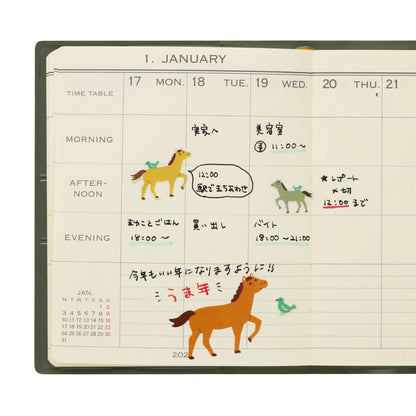 1. JANUARY
TIME TABLE
17 MON.
18 TUE.
19 WED.
20 THU.
21
MORNING
実家へ
美容室
11:00〜
AFTER-
NOON
12:00
駅でまちあわせ
★レポート
〆切
12:00まで
EVENING
まことごはん
18:00〜
買い出し
バイト
18:00〜21:00
今年もいい年になりますように!!
うま年
JAN.
M T W T F S S
1 2
3 4 5 6 7 8 9
10 11 12 13 14 15 16
17 18 19 20 21 22 23
24 25 26 27 28 29 30
31
202